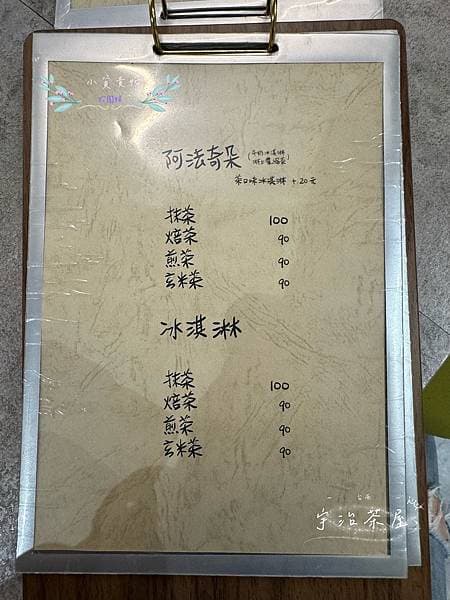 小寶貴北
校園線
阿法奇朵 (牛奶冰淇淋
淋上濃縮茶)
茶口味冰淇淋 +20元
抹茶 100
焙茶 90
煎茶 90
玄米茶 90
冰淇淋
抹茶 100
焙茶 90
煎茶 90
玄米茶 90
台南
宇治茶屋